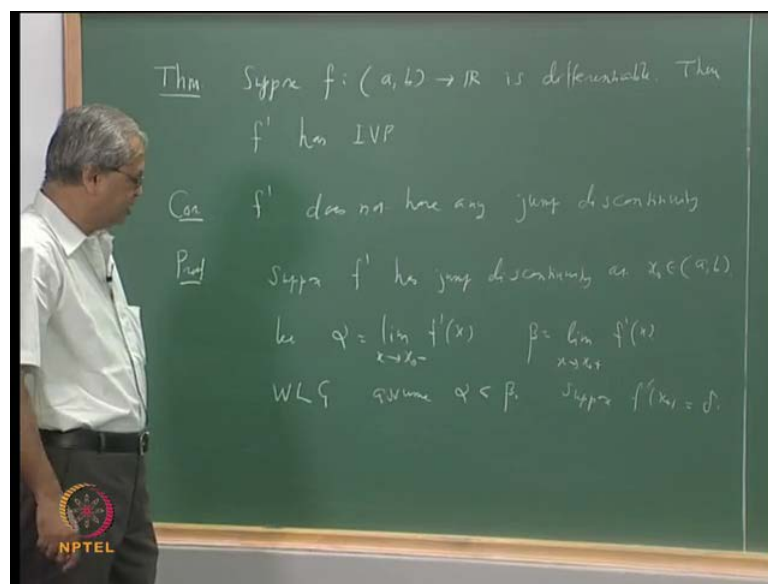 Thm. Suppose f : (a, b) → IR is differentiable. Then
f' has IVP
Cor. f' does not have any jump discontinuity
Proof Suppose f' has jump discontinuity at x₀ ∈ (a, b).
Let α = lim f'(x) β = lim f'(x)
x→x₀- x→x₀+
WLG assume α < β. Suppose f'(x₀) = δ.
NPTEL